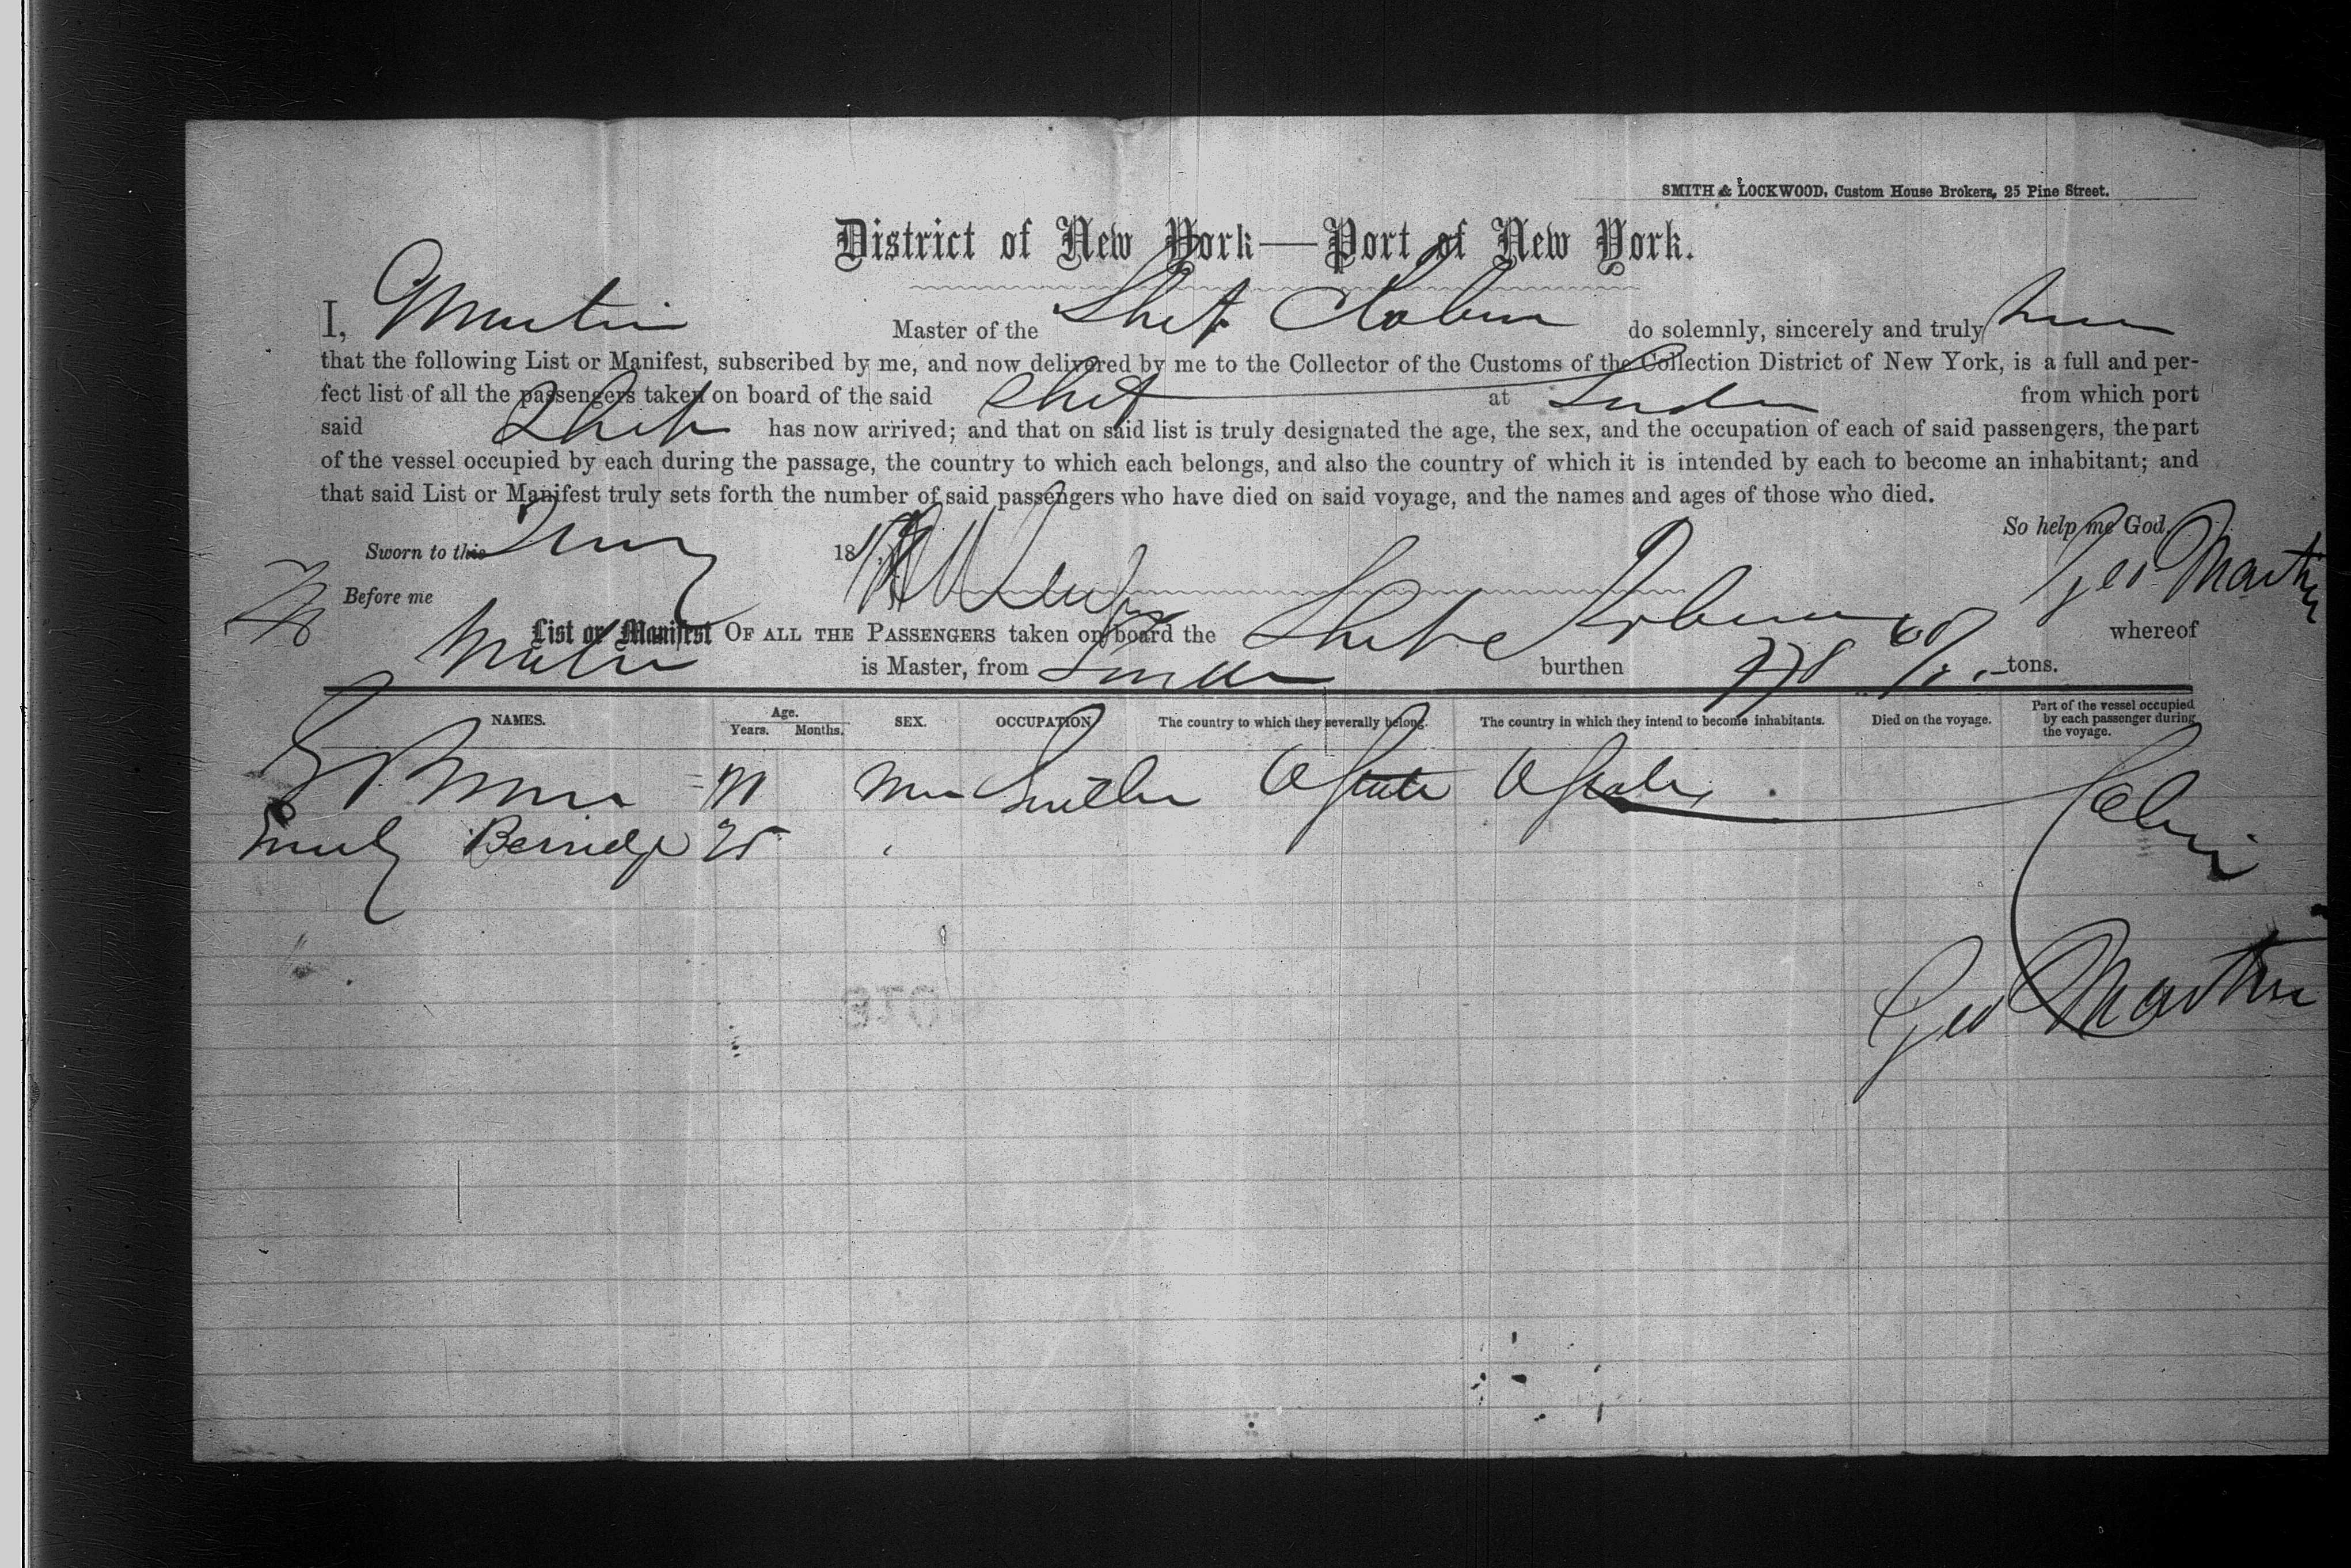 SMITH & LOCKWOOD, Custom House Brokers, 25 Pine Street.
District of New York—Port of New York.
I, G Martin Master of the Ship do solemnly, sincerely and truly
that the following List or Manifest, subscribed by me, and now delivered by me to the Collector of the Customs of the Collection District of New York, is a full and per-
fect list of all the passengers taken on board of the said Ship at London from which port
said Ship has now arrived; and that on said list is truly designated the age, the sex, and the occupation of each of said passengers, the part
of the vessel occupied by each during the passage, the country to which each belongs, and also the country of which it is intended by each to become an inhabitant; and
that said List or Manifest truly sets forth the number of said passengers who have died on said voyage, and the names and ages of those who died.
So help me God.
Sworn to this 18
Geo Martin
Before me
List or Manifest OF ALL THE PASSENGERS taken on board the Ship whereof
Martin is Master, from London burthen tons.
NAMES. Age. Years. Months. SEX. OCCUPATION The country to which they severally belong. The country in which they intend to become inhabitants. Died on the voyage. Part of the vessel occupied by each passenger during the voyage.
U States U States Cabin
Emily Berridge 25
Geo Martin